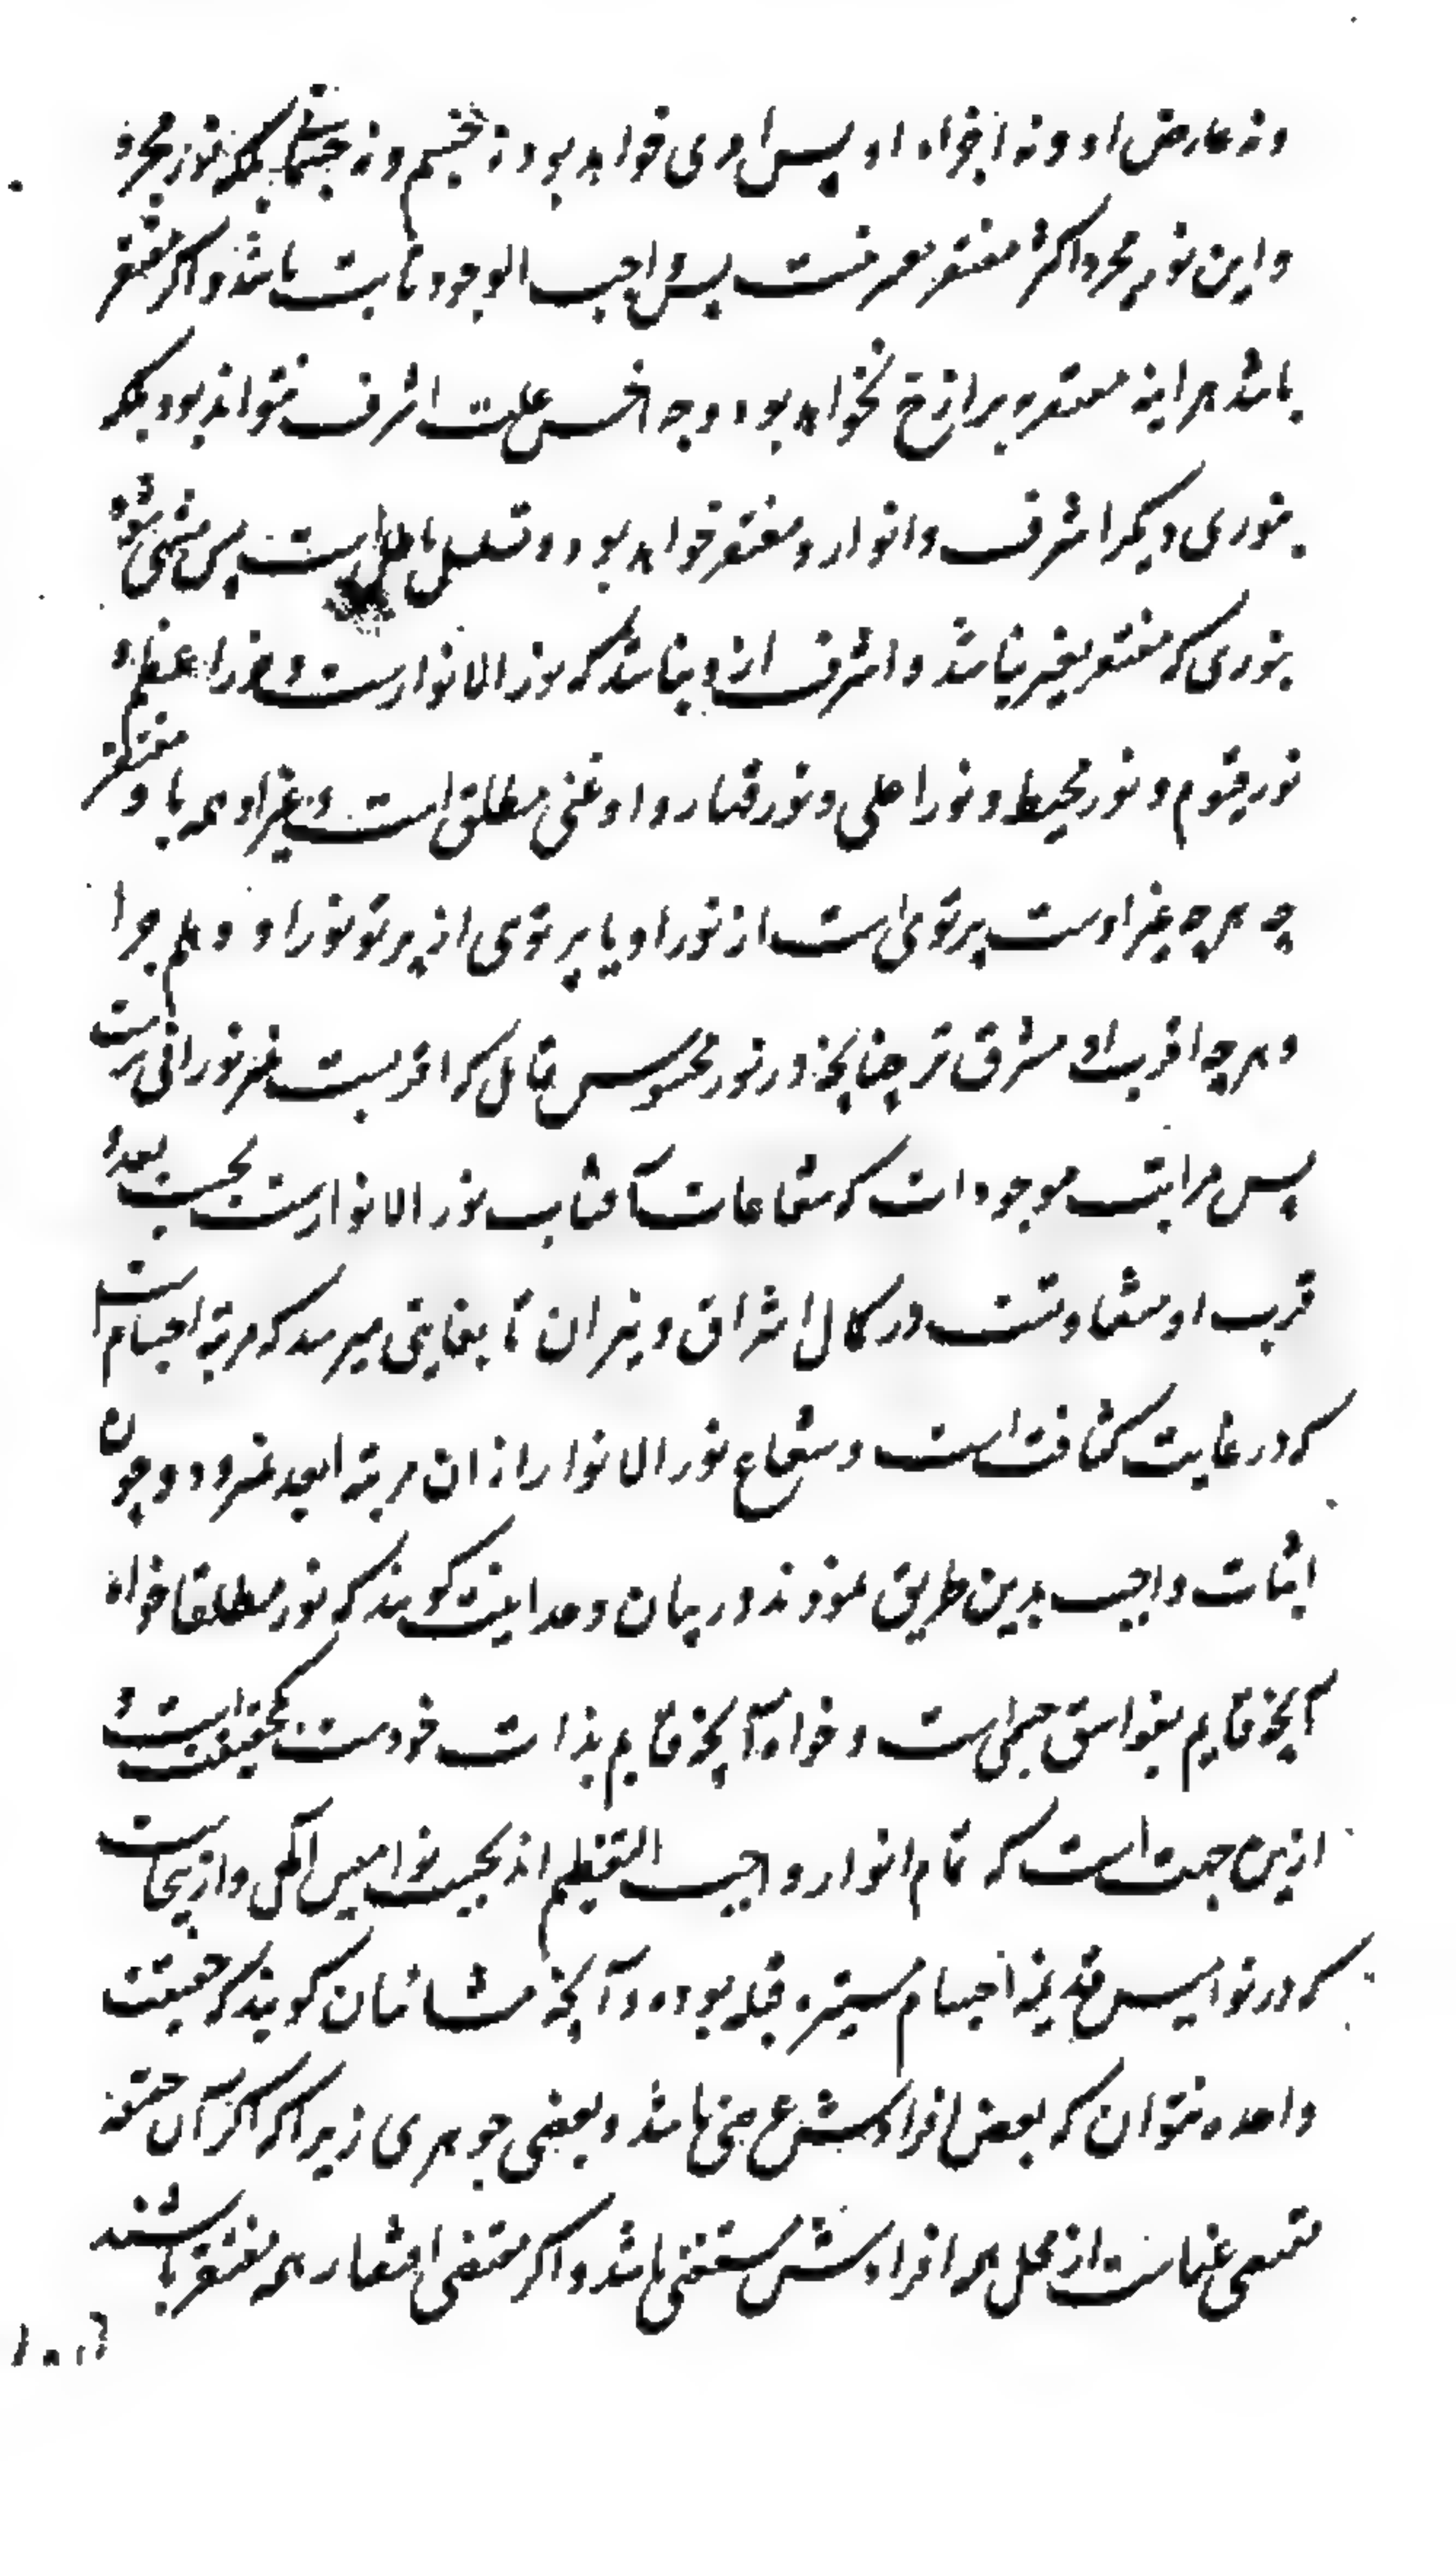 و نه عارض او و نه اجزاء او پس امری خواهد بود نه جسم و نه جسمانی بلکه نور مجرد
و این نور مجرد اکر مفتقر بغیر نیست پس واجب الوجود ثابت باشد و اکر مفتقر
باشد هر اینه مفتقر به برازخ نخواهد بود و چه اخس علت اشرف نتواند بود بلکه
بنوری دیکر اشرف و انوار و مفتقر خواهد بود و تسلسل باطل است پس منتهی شود
بنوری که مفتقر بغیر نباشد و اشرف از و نباشد که نور الانوارست و نور اعظم و
نور قیوم و نور محیط و نور اعلی و نور قهار و او غنی مطلق است و غیر او همه باو مفتقر
چه هر چه غیر اوست پرتوی است از نور او یا پرتوی از پرتو نور او و هلم جرا
و هر چه اقربست مشرق تر چنانچه در نور محسوس قابل که اقربست بنیر نورانی ترست
پس مراتب موجودات که شعاعات آفتاب نور الانوارست بحسب بعد و
قرب او متفاوتست در کمال اشراق و نیران تا بغایتی میرسد که مرتبه اجسام است
که در غایت کثافت است و شعاع نور الانوار از ان مرتبه ابعد نمیرود و چون
اثبات واجب بدین طریق نمودند در بیان وحدانیت کویند که نور مطلقا خواه
آنچه قایم بغواسق جسمی است و خواه آنچه قایم بذات خودست یک حقیقت است و
ازین جهت است که تمام انوار واجب التعظیم اند بحسب نوامیس آلهی و ازینجاست
که در نوامیس قدیمه اجسام مستنیره قبله بوده و آنچه مشائیان کویند که حقیقت
واحده نتوان که بعض افرادش عرضی باشد و بعضی جوهری زیرا که اکر آن حقیقة
مقتضی غناست از محل همه افرادش مستغنی باشد و اکر مقتضی افتقار همه مفتقر باشند